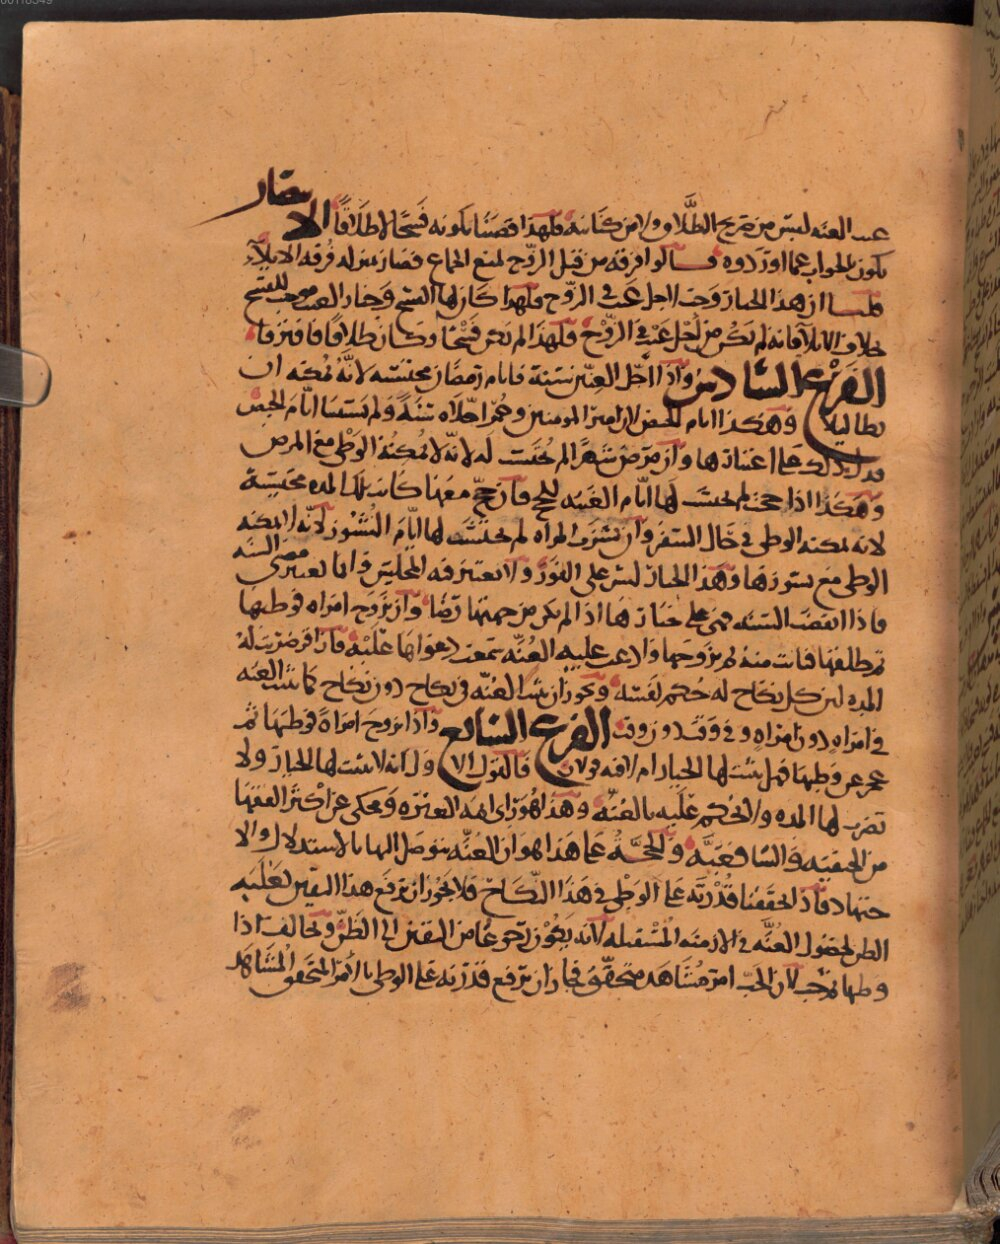 عيب العنه ليس من صريح الطلاق ولا من كنايته فلهذا قضينا بكونه فسخا لا طلاقا الانتصار
يكون بالجواب عما اوردوه قالوا فرقه من قبل الزوج لمنع الجماع فصار بمنزله فرقه الايلاء
قلنا ان هذا الخيار وجب لاجل عيب في الزوج فلهذا كان لها الفسخ وخيار العيب موجب للفسخ
خلاف الايلا فانه لم يكن من اجل عيب في الزوج فلهذا لم يكن فسخا وكان طلاقا فافترقا
الفرع السادس واذا اجل العنين سنة فايام رمضان محتسبه لانه يمكنه ان
يطا ليلا وهكذا ايام الحيض لان امير المومنين وعمر اجلاه سنة ولم يستثنيا ايام الحيض
فدل ذلك على اعتبارها وان مرض شهرا لم يحتسب له لانه لا يمكنه الوطي مع المرض
وهكذا اذا حج لم يحتسب لها ايام الغيبه للحج فان حج معها كانت تلك المده محتسبة
لانه يمكنه الوطي في حال السفر وان نشزت المراه لم يحتسب لها ايام النشوز لانه لا يمكنه
الوطي مع نشوزها وهذا الخيار ليس على الفور ولا يعتبر فيه المجلس وانما يعتبر مضي السنه
فاذا انقضت السنه فهي على خيارها اذا لم يكن من جهتها رضا وان تزوج امراه فوطيها
ثم طلقها فبانت منه ثم تزوجها وادعت عليه العنه سمعت دعواها عليه فان اقر ضربت له
المده لان كل نكاح له حكم نفسه ويجوز ان تثبت العنه في نكاح دون نكاح كما تثبت العنه
في امراه دون امراه وفي وقت دون وقت الفرع السابع واذا تزوج امراة فوطيها ثم
عجز عن وطيها فهل يثبت لها الخيار ام لا فيه قولان فالقول الاول انه لا يثبت لها الخيار ولا
تضرب لها المده ولا يحكم عليه بالعنه وهذا هو راي ايمه العتره ومحكى عن اكثر الفقها
من الحنفيه والشافعيه والحجة على هذا هو ان العنه يتوصل اليها بالاستدلال والا
جتهاد فاذ لحققنا قدرته على الوطي في هذا النكاح فلا يجوز ان يرفع هذا اليقين لغلبه
الظن لحصول العنه في الازمنه المستقبله لانه يكون رجوعا من اليقين الى الظن وتخالف اذا
وطيها ثم جب لان الجب امر مشاهد متحقق فجاز ان يرفع قدرته على الوطي بالامر المتحقق المشاهد